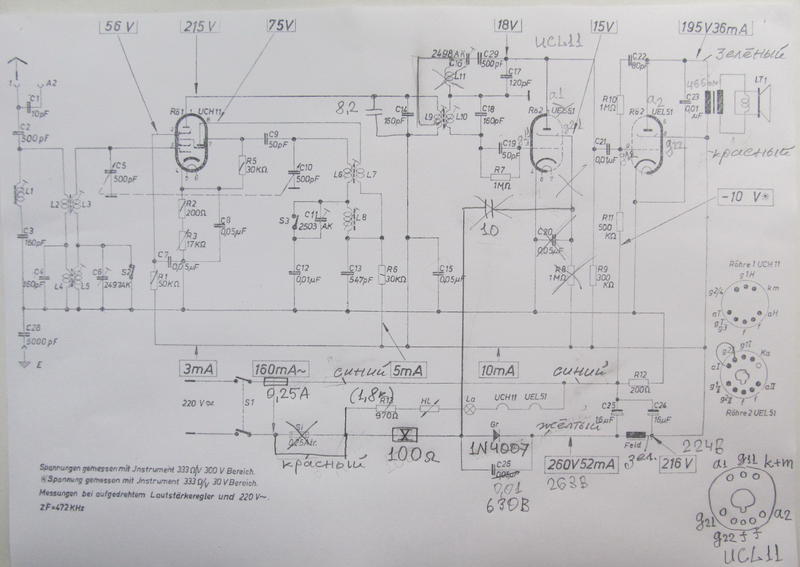 56 V
215 V
75V
18V
UCL11
15V
195V36mA
зелёный
1
A2
C1
10pF
C2
500 pF
Rö1
UCH11
C5
500pF
C9
50pF
R5
30KΩ
C10
500pF
8,2
C14
2498AK
C16
L11
C29
500pF
C17
120pF
L9
L10
C18
160pF
C19
50pF
R7
1MΩ
a1
Rö2
UEL51
R10
1MΩ
C22
a2
Rö2
UEL51
C23
0,01
µF
LT1
красный
C21
0,01µF
g22
L1
L2
L3
L6
L7
R2
200Ω
R3
17KΩ
C8
0,05µF
S3
C11
2503
AK
L8
10
-10 V*
R11
500
KΩ
C3
160pF
C4
160pF
L4
L5
C6
2497AK
S2
C7
0,05µF
R1
50KΩ
C12
0,01µF
C13
547pF
R6
30KΩ
C15
0,05µF
C20
0,05µF
R8
1MΩ
R9
300
KΩ
Röhre 1 UCH 11
g1H
km
aT
aH
f
f
C28
5000pF
E
3mA
160mA~
синий
5mA
10mA
синий
R12
200Ω
220 V~
S1
0,25A
(1,8к)
970Ω
HL
La
UCH11
UEL51
C25
16µF
C24
16µF
Röhre 2 UEL51
Si
красный
100Ω
Gr
1N4007
жёлтый
Feld
зел.
224В
C26
0,01
630В
260V52mA
263В
216 V
Spannungen gemessen mit Jnstrument 333 Ω/V 300 V Bereich.
*Spannung gemessen mit Jnstrument 333 Ω/V 30 V Bereich.
Messungen bei aufgedrehtem Lautstärkeregler und 220 V~.
ZF=472 KHz
a1 g11 k+m
g21
a2
g22 f f
UCL11